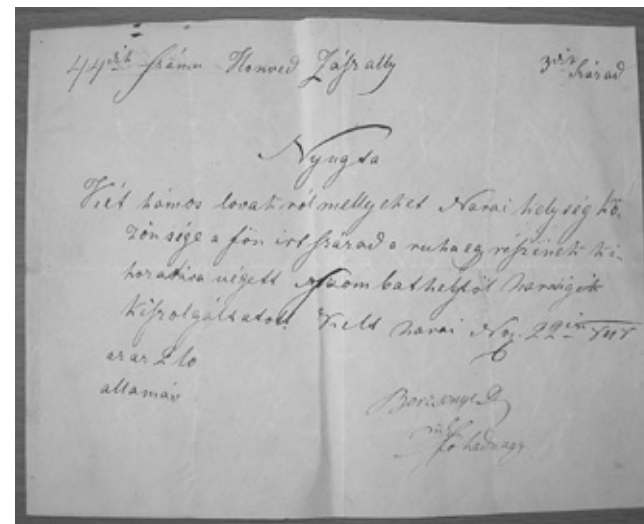 44dik számu Honvéd Zászlally 3dik Század
Nyugta
Két hámos lovakról mellyeket Narai helység kö-
zönsége a fön irt század a ruha egy részének ki-
horatása végett Szombathelytöl naraiga
kiszolgáltatott Kelt Narai Nov. 22
az az 2 lo
állomás
Főhadnagy